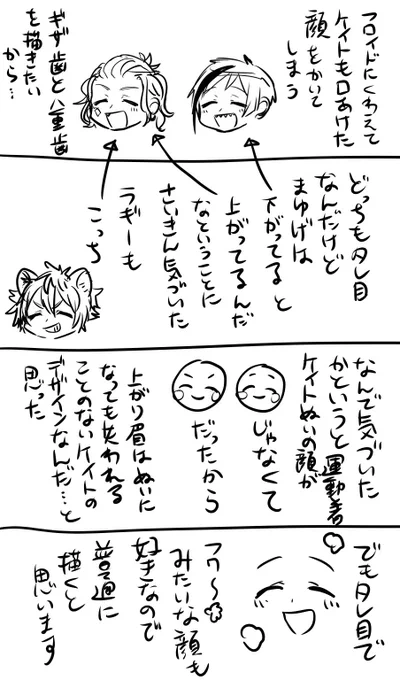 フロイドにくわえて
ケイトも口あけた
顔をかいて
しまう
ギザ歯と八重歯
を描きたい
から…
どっちもタレ目
なんだけど
まゆげは
下がってると
上がってるんだ
なということに
さいきん気づいた
ラギーも
こっち
なんで気づいた
かというと運動着
ケイトぬいの顔が
じゃなくて
だったから
上がり眉はぬいに
なっても失われる
ことのないケイトの
デザインなんだ…と
思った
でもタレ目で
フワ〜
みたいな顔も
好きなので
普通に
描くと
思います